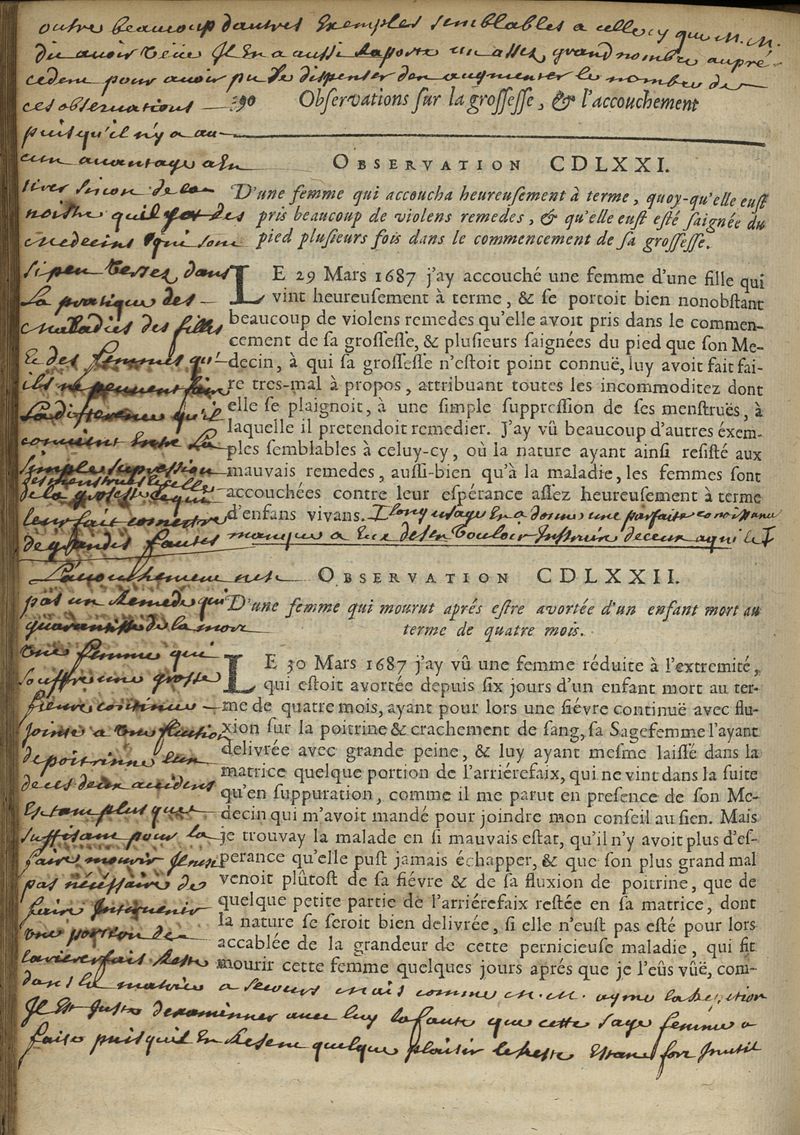 outre beaucoup dautres Exemples semblables a celle cy que M. M.
dit avoir veüe Il En a aussi raporté un assez grand nombre au pre-
cedent pour avoir pu se dispenser den augmenter le nombre de
ces observations
390 Obſervations ſur la groſſeſſe, & l'accouchement
puisqu'il n'y a au-
cun avantage a En
tirer sinon de
OBSERVATION CDLXXI.
D'une femme qui accoucha heureuſement à terme, quoy-qu'elle euſt
pris beaucoup de violens remedes, & qu'elle euſt eſté ſaignée du
pied pluſieurs fois dans le commencement de ſa groſſeſſe.
qu'il des
medecins qui sont
si peu versez dans
la pratique des
maladies des filles
Et des femmes qu'
ils ne peuvent faire
la difference qu'il
convient Entre la
simple supression
des menstrues Et celle
de la grossesse qui
leur fait commettre
de grandes fautes
LE 29 Mars 1687 j'ay accouché une femme d'une fille qui
vint heureuſement à terme, & ſe portoit bien nonobſtant
beaucoup de violens remedes qu'elle avoit pris dans le commen-
cement de ſa groſſeſſe, & pluſieurs ſaignées du pied que ſon Me-
decin, à qui ſa groſſeſſe n'eſtoit point connuë, luy avoit fait fai-
re tres-mal à propos, attribuant toutes les incommoditez dont
elle ſe plaignoit, à une ſimple ſuppreſſion de ſes menſtruës, à
laquelle il pretendoit remedier. J'ay vû beaucoup d'autres éxem-
ples ſemblables à celuy-cy, où la nature ayant ainſi reſiſté aux
mauvais remedes, auſſi-bien qu'à la maladie, les femmes ſont
accouchées contre leur eſpérance aſſez heureuſement à terme
d'enfans vivans. long usage En a donné une parfaite
manque a Eux de sen vouloir Instruire de ceux a qui le
OBSERVATION CDLXXII.
D'une femme qui mourut aprés eſtre avortée d'un enfant mort au
terme de quatre mois.
Lacouchement nest
pas un Remede qui
de la mort
une femme qui
souffre une grosse
fievre continue
jointe a une fluxion
de poitrinne lun
de ces deux accidens
Estant plus que
suffisant pour la
faire mourir Il nest
pas nécéssaire de
faire Intervenir
une portion de
larierefait Restée
LE 30 Mars 1687 j'ay vû une femme réduite à l'extremité,
qui eſtoit avortée depuis ſix jours d'un enfant mort au ter-
me de quatre mois, ayant pour lors une fiévre continuë avec flu-
xion ſur la poitrine & crachement de ſang, ſa Sagefemme l'ayant
delivrée avec grande peine, & luy ayant meſme laiſſé dans la
matrice quelque portion de l'arriérefaix, qui ne vint dans la ſuite
qu'en ſuppuration, comme il me parut en preſence de ſon Me-
decin qui m'avoit mandé pour joindre mon conſeil au ſien. Mais
je trouvay la malade en ſi mauvais eſtat, qu'il n'y avoit plus d'eſ-
perance qu'elle puſt jamais échapper, & que ſon plus grand mal
venoit plûtoſt de ſa fiévre & de ſa fluxion de poitrine, que de
quelque petite partie de l'arriérefaix reſtée en ſa matrice, dont
la nature ſe ſeroit bien delivrée, ſi elle n'euſt pas eſté pour lors
accablée de la grandeur de cette pernicieuſe maladie, qui fit
mourir cette femme quelques jours aprés que je l'eûs vûë, com-
dans la matrice a mais comme M. M. ayme la
Il Est Juste dexaminner avec luy la faute que cette sage femme a
faite puisquil En Resent quelque plaisir le reste Estant fort Inutil